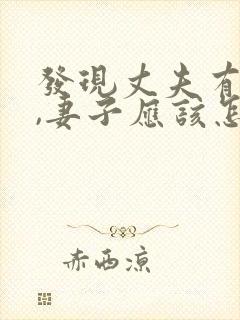 發現丈夫有
,妻子應該怎
赤西凉